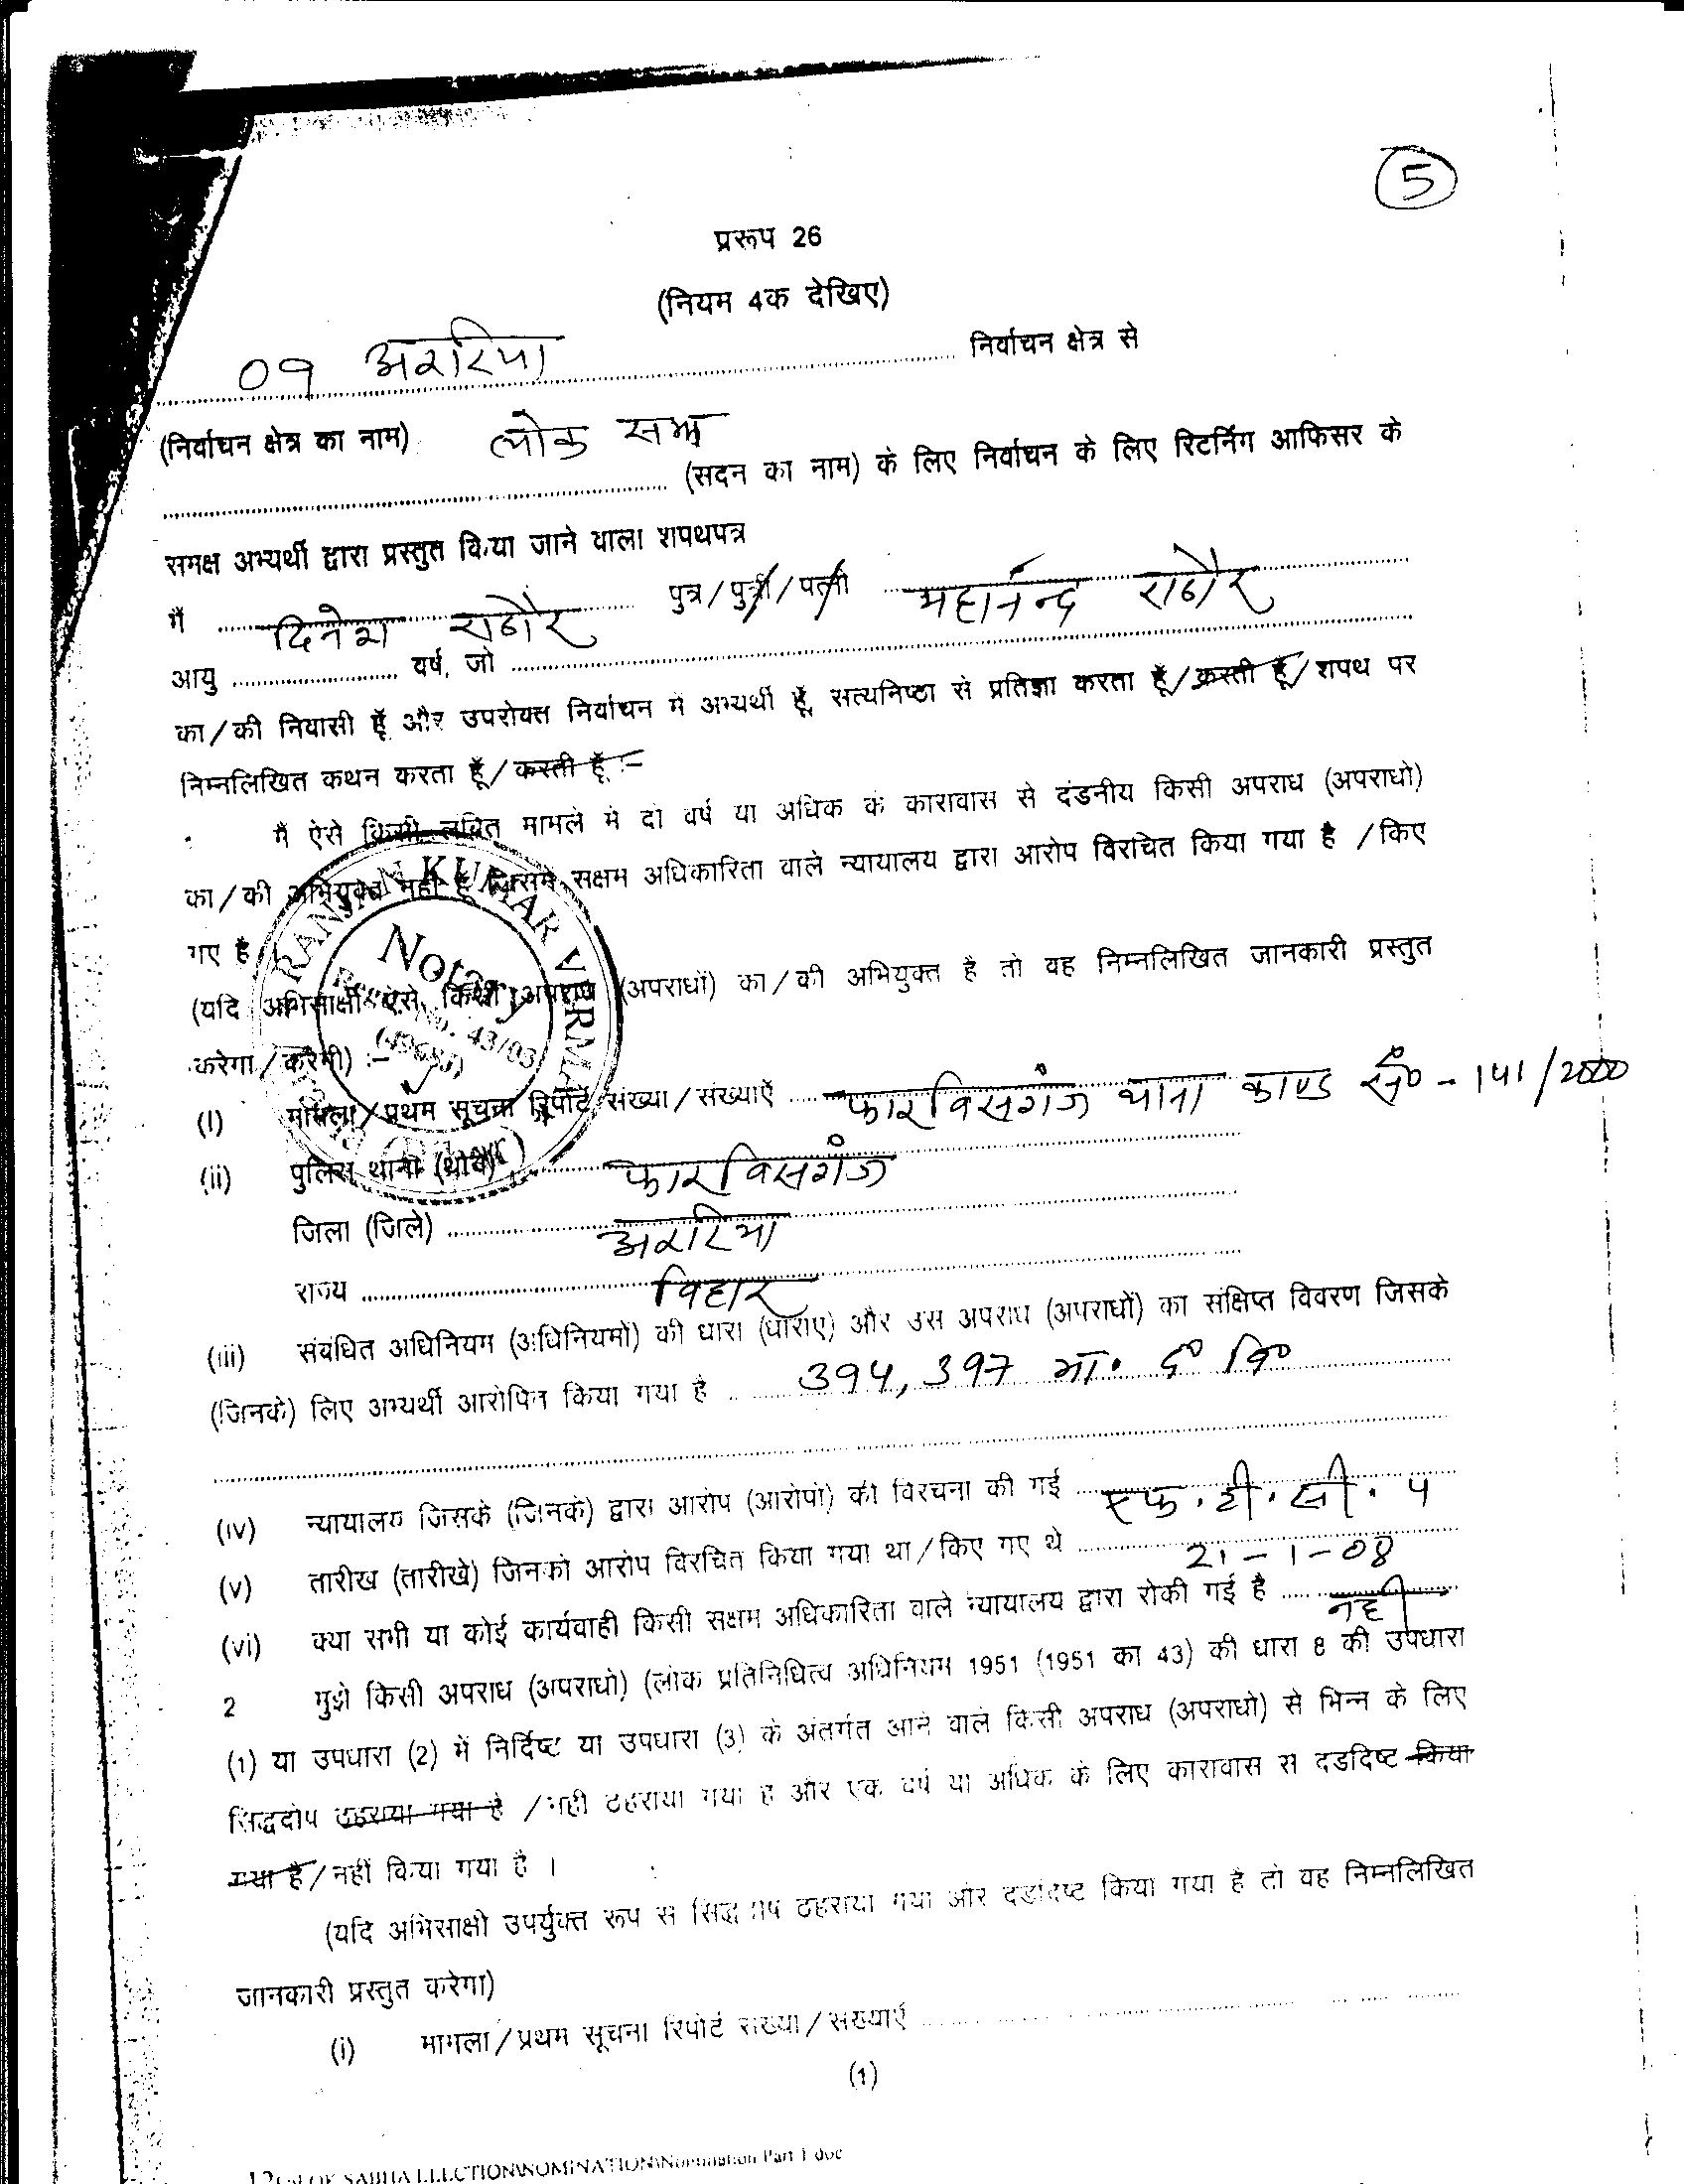 5
प्ररूप 26
(नियम 4क देखिए)
09 अररिया निर्वाचन क्षेत्र से
(निर्वाचन क्षेत्र का नाम) लोक सभा
(सदन का नाम) के लिए निर्वाचन के लिए रिटर्निंग आफिसर के
समक्ष अभ्यर्थी द्वारा प्रस्तुत किया जाने वाला शपथपत्र
मैं दिनेश राठौर पुत्र/पुत्री/पत्नी महानन्द राठौर
आयु वर्ष, जो
का/की निवासी हूँ और उपरोक्त निर्वाचन में अभ्यर्थी हूँ, सत्यनिष्ठा से प्रतिज्ञा करता हूँ/करती हूँ/शपथ पर
निम्नलिखित कथन करता हूँ/करती हूँ :-
मैं ऐसे किसी लंबित मामले में दो वर्ष या अधिक के कारावास से दंडनीय किसी अपराध (अपराधो)
का/की अभियुक्त नहीं हूँ जिसमें सक्षम अधिकारिता वाले न्यायालय द्वारा आरोप विरचित किया गया है /किए
गए है
(यदि अभिसाक्षी ऐसे किसी अपराध (अपराधों) का/की अभियुक्त है तो वह निम्नलिखित जानकारी प्रस्तुत
करेगा/करेगी) :-
RANJAN KUMAR VERMA
Notary
43/03
(i) मामला/प्रथम सूचना रिपोर्ट संख्या/संख्याएँ फारविसगंज थाना काण्ड सं० - 141/2000
(ii) पुलिस थाना (थाने) फारविसगंज
जिला (जिले) अररिया
राज्य विहार
(iii) संबंधित अधिनियम (अधिनियमों) की धारा (धाराए) और उस अपराध (अपराधों) का संक्षिप्त विवरण जिसके
(जिनके) लिए अभ्यर्थी आरोपित किया गया है 394, 397 भा. द० वि०
(iv) न्यायालय जिसके (जिनके) द्वारा आरोप (आरोपो) की विरचना की गई एफ. टी. सी. 4
(v) तारीख (तारीखे) जिनको आरोप विरचित किया गया था/किए गए थे 21-1-08
(vi) क्या सभी या कोई कार्यवाही किसी सक्षम अधिकारिता वाले न्यायालय द्वारा रोकी गई है नही
2 मुझे किसी अपराध (अपराधो) (लोक प्रतिनिधित्व अधिनियम 1951 (1951 का 43) की धारा 8 की उपधारा
(1) या उपधारा (2) में निर्दिष्ट या उपधारा (3) के अंतर्गत आने वाले किसी अपराध (अपराधो) से भिन्न के लिए
सिद्धदोष ठहराया गया है /नही ठहराया गया है और एक वर्ष या अधिक के लिए कारावास से दडदिष्ट किया
गया है/नहीं किया गया है ।
(यदि अभिसाक्षी उपर्युक्त रूप से सिद्धदोष ठहराया गया और दडदिष्ट किया गया है तो वह निम्नलिखित
जानकारी प्रस्तुत करेगा)
(i) मामला/प्रथम सूचना रिपोर्ट संख्या/संख्याएँ
(1)
SABHA ELECTION\NOMINATION\Nomination Part 1 doc